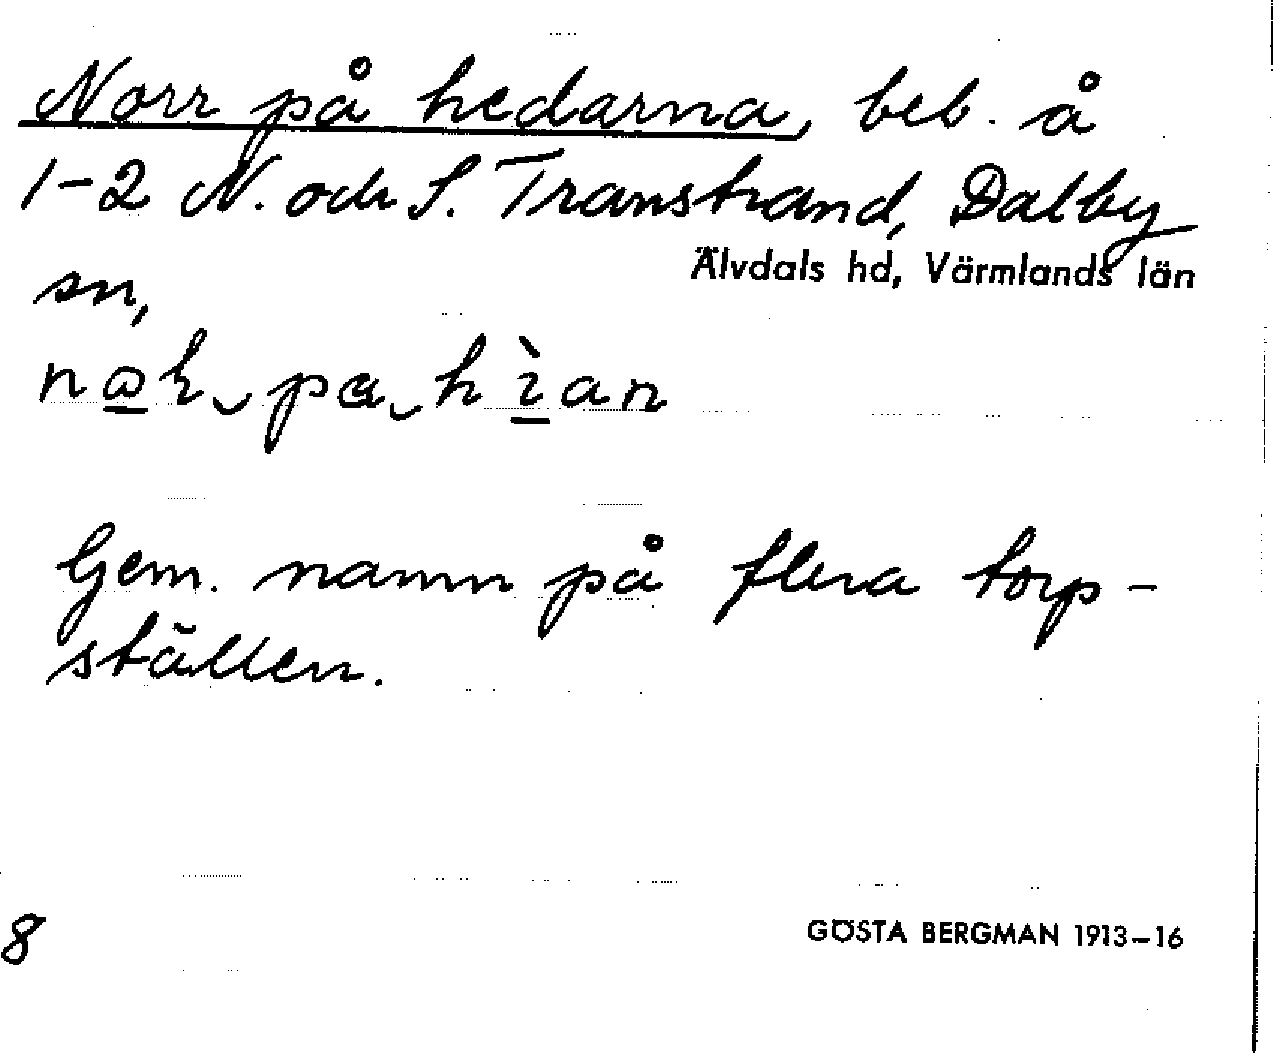 Norr på hedarna, beb. å
1-2 N. och S. Transtrand, Dalby
Älvdals hd, Värmlands län
sn,
Gem. namn på flera torp-
ställen.
8
GÖSTA BERGMAN 1913-16